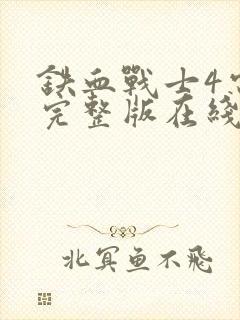 鉄血戰士4
完整版在綫
北冥鱼不飛